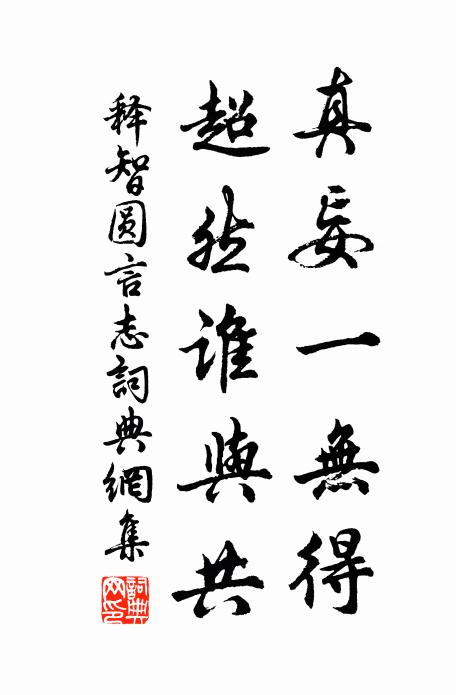 真妄一無得
超然誰與共
释智圆言志詞典網集
詞典网印